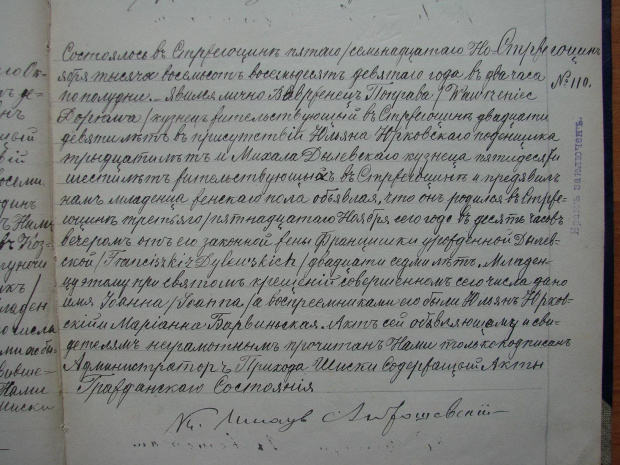 Состоялось въ Стрегоцинѣ пятаго/семьнадцатаго Но- Стрегоцинъ
ября тысяча восемьсотъ восемьдесятъ девятаго года въ два часа № 110.
пополудни. Явился лично Вавренецъ Поправа /Wawrzeniec
кузнецъ жительствующій въ Стрегоцинѣ двадцати
девяти лѣтъ въ присутствіи Юльяна Юрковскаго поденщика
тридцати лѣтъ и Михала Дылевскаго кузнеца пятидесяти
шести лѣтъ жительствующихъ въ Стрегоцинѣ и предъявилъ
намъ младенца женскаго пола объявляя, что онъ родился въ Стре-
гоцинѣ третьяго/пятнадцатаго Ноября сего года въ десять часовъ
вечеромъ отъ его законной жены Францишки урожденной Дылев-
ской /Franciszki z Dylewskich/ двадцати седми лѣтъ. Младен-
цу этому при святомъ крещеніи совершенномъ сего числа дано
имя Іоанна /Joanna/ а воспреемниками его были Юльянъ Юрков-
скій и Маріанна Барвинская. Актъ сей объявляющему и сви-
дѣтелямъ неграмотнымъ прочитанъ Нами только подписанъ
Администраторъ Прихода Содержащій Акты
Гражданскаго Состоянія
Кс.
Бракъ заключенъ.